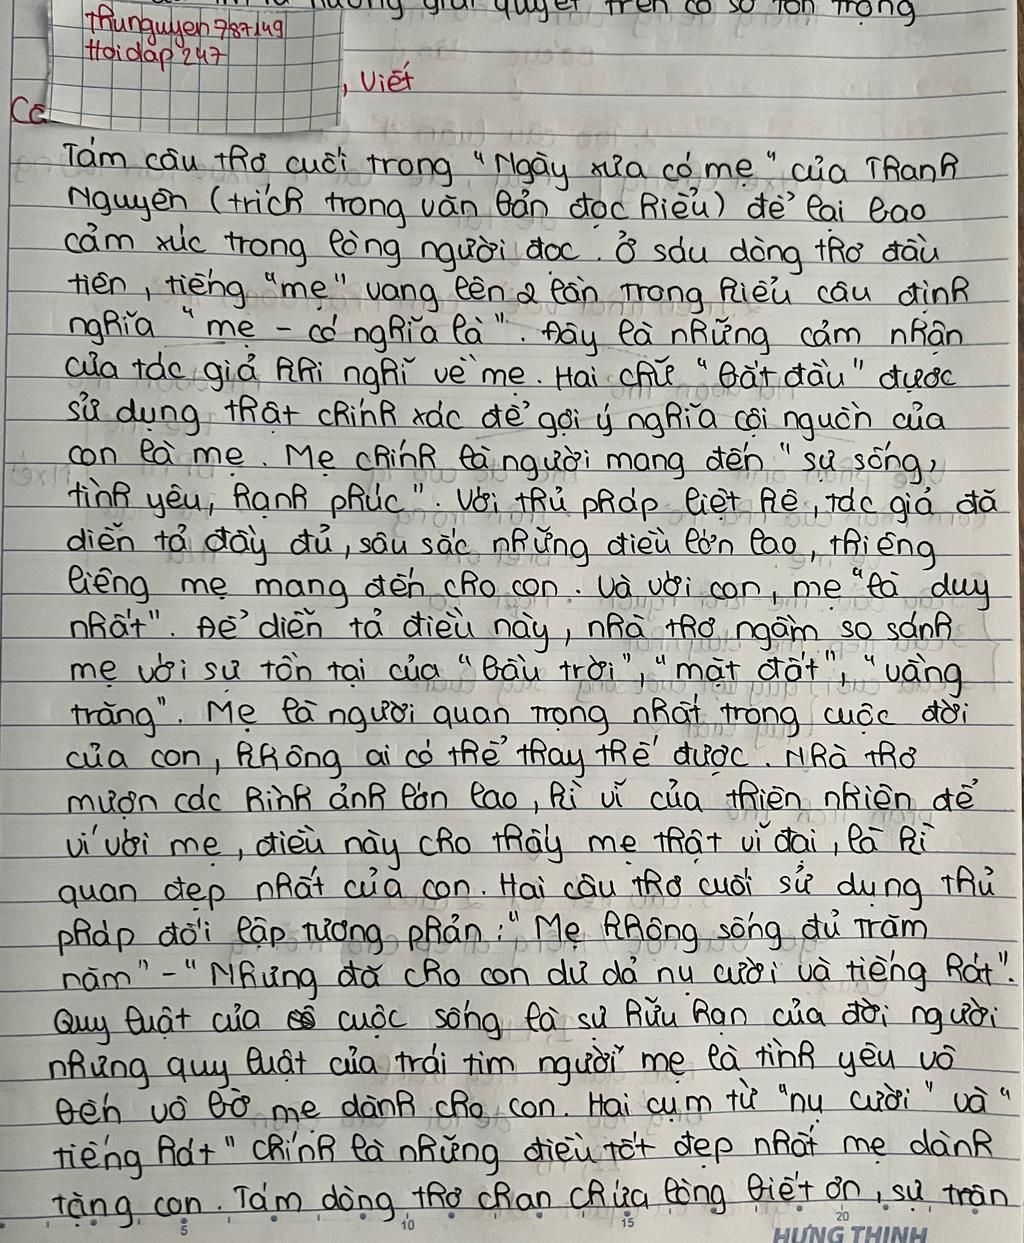 hướng giải quyết trên cơ sở tôn trọng
thunguyen787149
Hoidap247
, Viết
Câ
Tám câu thơ cuối trong "Ngày xưa có mẹ" của Thanh
Nguyên (trích trong văn bản đọc hiểu) để lại bao
cảm xúc trong lòng người đọc. Ở sáu dòng thơ đầu
tiên, tiếng "mẹ" vang lên 2 lần trong kiểu câu định
nghĩa "mẹ - có nghĩa là". Đây là những cảm nhận
của tác giả khi nghĩ về mẹ. Hai chữ "bắt đầu" được
sử dụng thật chính xác để gợi ý nghĩa cội nguồn của
con là mẹ. Mẹ chính là người mang đến "sự sống,
tình yêu, hạnh phúc". Với thủ pháp liệt kê, tác giả đã
diễn tả đầy đủ, sâu sắc những điều lớn lao, thiêng
liêng mẹ mang đến cho con. Và với con, mẹ "là duy
nhất". Để diễn tả điều này, nhà thơ ngầm so sánh
mẹ với sự tồn tại của "bầu trời", "mặt đất", "vầng
trăng". Mẹ là người quan trọng nhất trong cuộc đời
của con, không ai có thể thay thế được. Nhà thơ
mượn các hình ảnh lớn lao, kì vĩ của thiên nhiên để
ví với mẹ, điều này cho thấy mẹ thật vĩ đại, là kì
quan đẹp nhất của con. Hai câu thơ cuối sử dụng thủ
pháp đối lập tương phản: "Mẹ không sống đủ trăm
năm" - "Nhưng đã cho con dư dả nụ cười và tiếng hát".
Quy luật của cuộc sống là sự hữu hạn của đời người
nhưng quy luật của trái tim người mẹ là tình yêu vô
bến vô bờ mẹ dành cho con. Hai cụm từ "nụ cười" và "
tiếng hát" chính là những điều tốt đẹp nhất mẹ dành
tặng con. Tám dòng thơ chan chứa lòng biết ơn, sự trân
5 10 15 20
HƯNG THỊNH